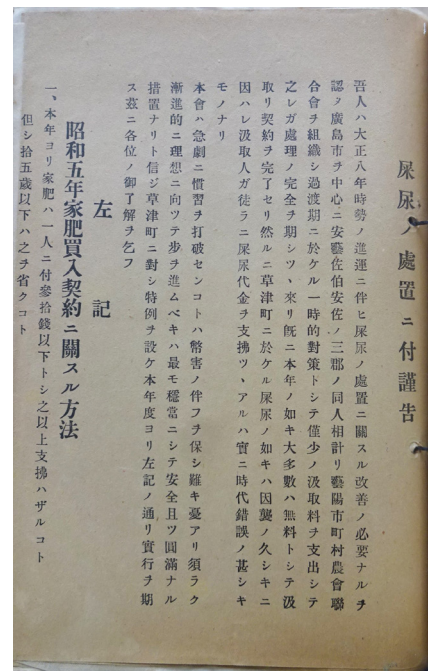 屎尿ノ處置ニ付謹告
吾人ハ大正八年時勢ノ進運ニ伴ヒ屎尿ノ處置ニ關スル改善ノ必要ナルヲ
認メ廣島市ヲ中心ニ安藝佐伯安佐ノ三郡ノ同人相計リ藝陽市町村農會聯
合會ヲ組織シ過渡期ニ於ケル一時的對策トシテ僅少ノ汲取料ヲ支出シテ
之レガ處理ノ完全ヲ期シツヽ來リ既ニ本年ノ如キ大多數ハ無料トシテ汲
取リ契約ヲ完了セリ然ルニ草津町ニ於ケル屎尿ノ如キハ因襲ノ久シキニ
因ハレ汲取人ガ徒ラニ屎尿代金ヲ支拂ツヽアルハ實ニ時代錯誤ノ甚シキ
モノナリ
本會ハ急劇ニ慣習ヲ打破センコトハ幣害ノ伴フヲ保シ難キ憂アリ須ラク
漸進的ニ理想ニ向ツテ歩ヲ進ムベキハ最モ穩當ニシテ安全且ツ圓滿ナル
措置ナリト信ジ草津町ニ對シ特例ヲ設ケ本年度ヨリ左記ノ通リ實行ヲ期
ス玆ニ各位ノ御了解ヲ乞フ
左記
昭和五年家肥買入契約ニ關スル方法
一、本年ヨリ家肥ハ一人ニ付參拾錢以下トシ之以上支拂ハザルコト
但シ拾五歳以下ハ之ヲ省クコト